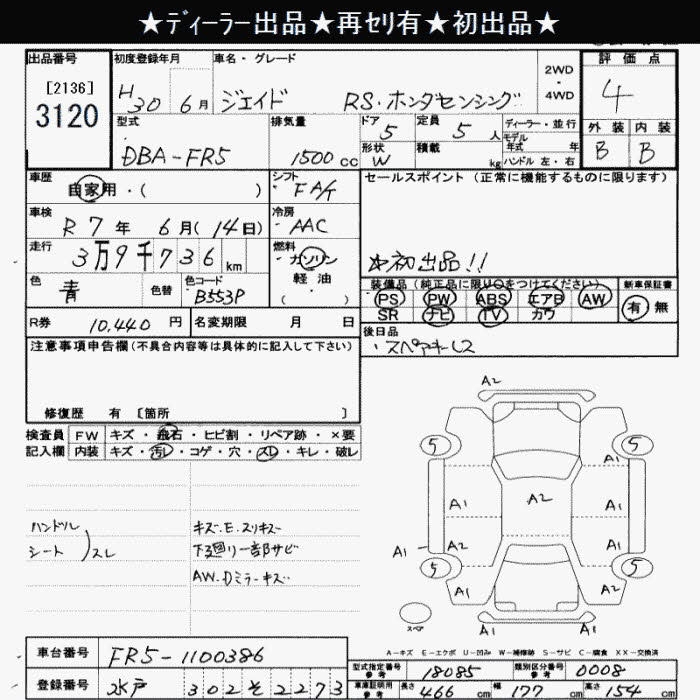 ★ディーラー出品★再セリ有★初出品★
出品番号
[2136]
3120
初度登録年月
H30 6月
車名・グレード
ジェイド RS・ホンダセンシング
2WD
・
4WD
評価点
4
外装 内装
B B
型式
DBA-FR5
排気量
1500cc
ドア
5
定員
5人
形状
W
積載
kg
ディーラー・並行
モデル年式 年
ハンドル 左・右
車歴
自家用・( )
シフト
FA/T
車検
R7年 6月(14日)
冷房
AAC
走行
3万9千736km
燃料
ガソリン
軽油
( )
色
青
色替
色コード
B553P
R券
10,440円
名変期限 月 日
セールスポイント(正常に機能するものに限ります)
☆初出品!!
装備品(純正品に限り○をつけてください)
PS PW ABS エアB AW
SR ナビ TV カワ
新車保証書
有 無
後日品
・スペアキーL2
注意事項申告欄(不具合内容等は具体的に記入して下さい)
修復歴 有 [箇所 ]
検査員
記入欄
FW キズ・飛石・ヒビ割・リペア跡・×要
内装 キズ・汚レ・コゲ・穴・スレ・キレ・破レ
ハンドル
シート
スレ
キズ.E.スリキズ
下廻リ一部サビ
AW.Dミラーキズ
A2
5 5
A1
A1 A2 A1
A1 A2 A1
5 5
A2 A2
A1
スペア
A1
A-キズ E-エクボ U-凹み W-補修跡 S-サビ C-腐食 XX-交換済
車台番号
FR5-1100386
登録番号
水戸 302そ2273
型式指定番号
参考
18085
類別区分番号
参考
0008
車庫証明用
参考
長さ 466cm
幅 177cm
高さ 154cm